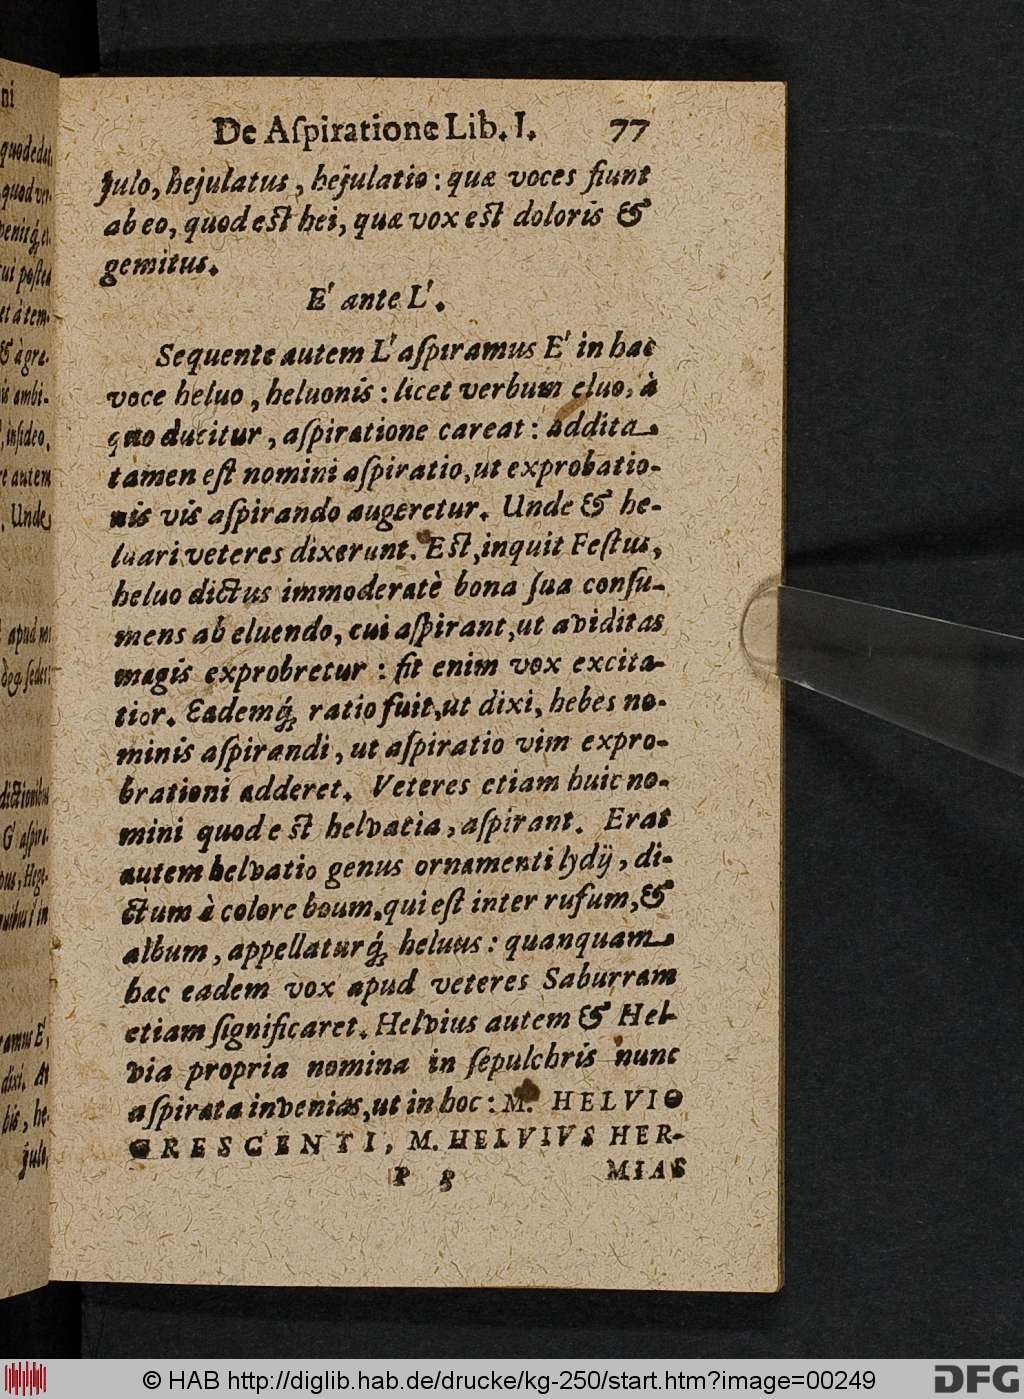 De Aſpiratione Lib. I. 77
julo, hejulatus, hejulatio: quæ voces fiunt
ab eo, quod eſt hei, quæ vox eſt doloris &
gemitus.
E' ante L'.
Sequente autem L' aſpiramus E' in hac
voce heluo, heluonis: licet verbum eluo, à
quo ducitur, aſpiratione careat: addita
tamen eſt nomini aſpiratio, ut exprobatio-
nis vis aſpirando augeretur. Unde & he-
luari veteres dixerunt. Eſt, inquit Feſtus,
heluo dictus immoderatè bona ſua conſu-
mens ab eluendo, cui aſpirant, ut aviditas
magis exprobretur: fit enim vox excita-
tior. Eademq́; ratio fuit, ut dixi, hebes no-
minis aſpirandi, ut aſpiratio vim expro-
brationi adderet. Veteres etiam huic no-
mini quod eſt helvatia, aſpirant. Erat
autem helvatio genus ornamenti lydij, di-
ctum à colore boum, qui eſt inter rufum, &
album, appellaturq́; heluus: quanquam
hac eadem vox apud veteres Saburram
etiam ſignificaret. Helvius autem & Hel-
via propria nomina in ſepulchris nunc
aſpirata invenias, ut in hoc: M. HELVIO
CRESCENTI, M. HELVIVS HER-
P 8 MIAS
ni
quod ver-
tui poſtea
et à tem-
& à gre-
inſideo.
re autem
Unde
apud
dictionibus
G' aſpira-
ramus E',
dixi. At
bis, he-
julo,
© HAB http://diglib.hab.de/drucke/kg-250/start.htm?image=00249
DFG